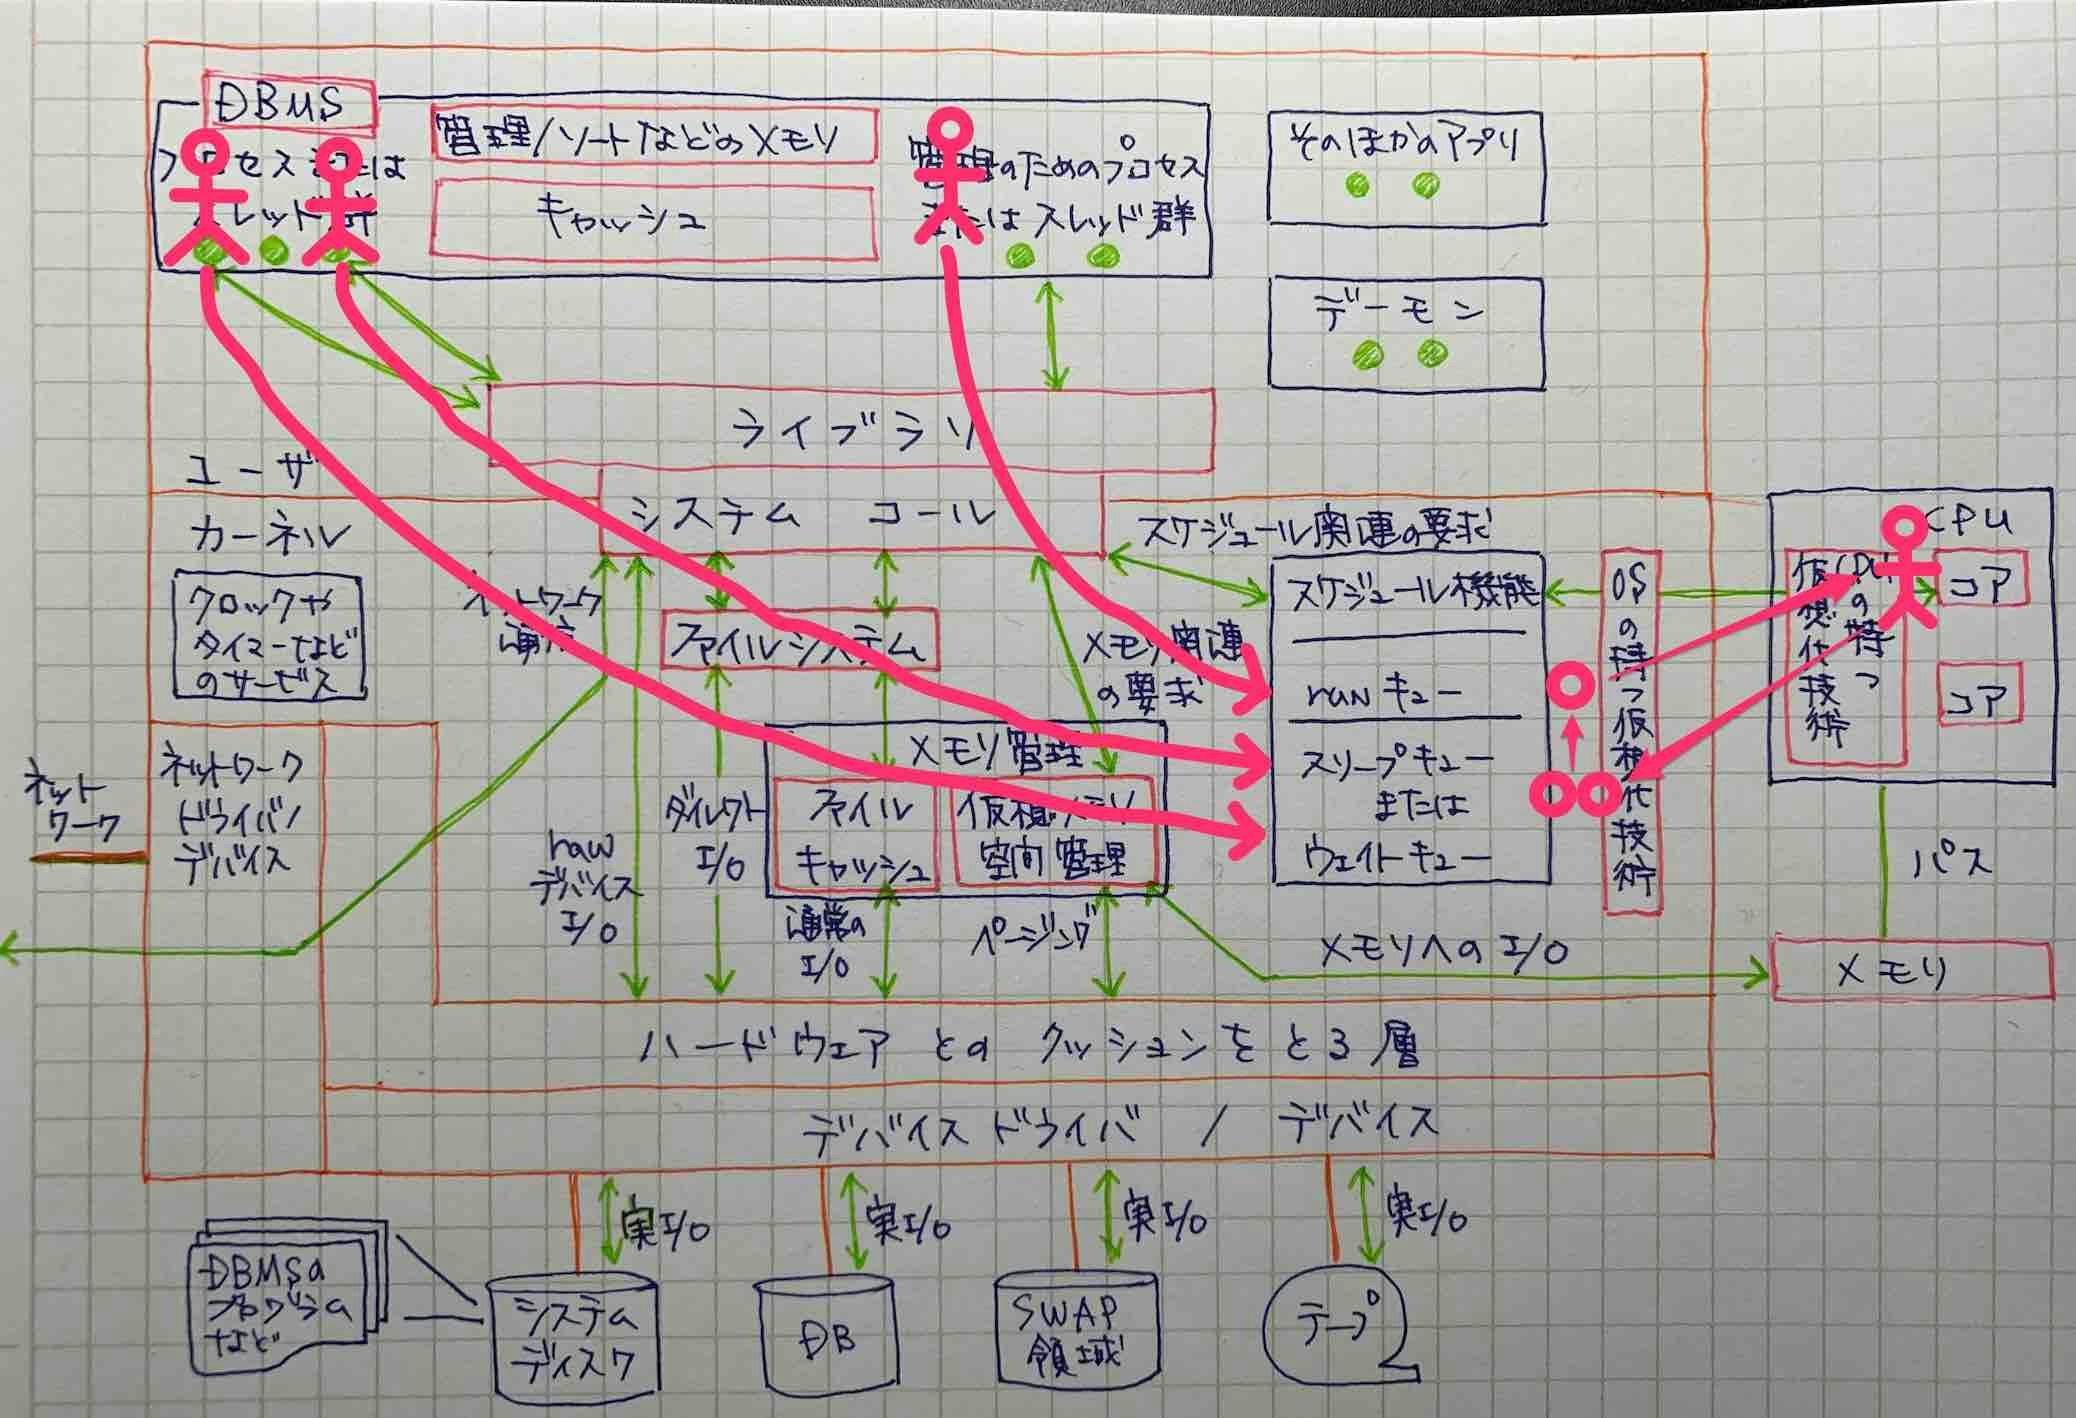 DBMS
管理/ソートなどのメモリ
キャッシュ
管理のためのプロセス
またはスレッド群
そのほかのアプリ
デーモン
プロセスまたは
スレッド群
ライブラリ
システム コール
ユーザ
カーネル
クロックや
タイマーなど
のサービス
ネットワーク
通信
ファイルシステム
メモリ関連
の要求
スケジュール関連の要求
スケジュール機能
runキュー
スリープキュー
または
ウェイトキュー
OSの持つ仮想化技術
CPU
CPUの持つ
仮想化技術
コア
コア
バス
メモリ
メモリへのI/O
メモリ管理
ファイル
キャッシュ
仮想メモリ
空間管理
ネット
ワーク
ネットワーク
ドライバ/
デバイス
raw
デバイス
I/O
ダイレクト
I/O
通常の
I/O
ページング
ハードウェアとのクッションをとる層
デバイスドライバ / デバイス
実I/O
実I/O
実I/O
実I/O
DBMSの
プログラム
など
システム
ディスク
DB
SWAP
領域
テープ